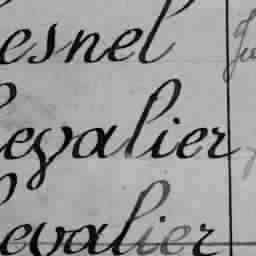 esnel
hevalier
hevalier